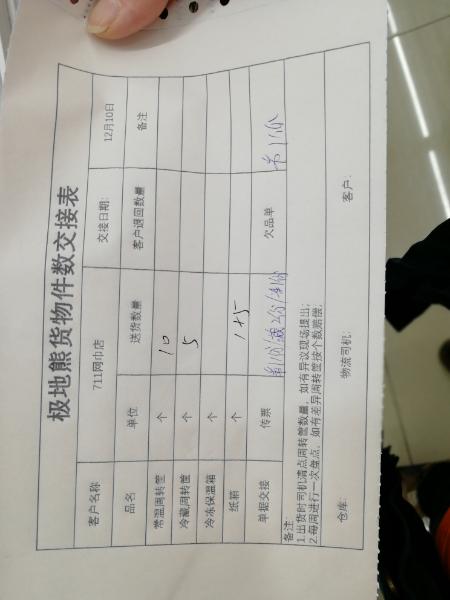 极地熊货物件数交接表
客户名称 711网巾店 交接日期: 12月10日
品名 单位 送货数量 客户退回数量 备注
常温周转筐 个 10
冷藏周转筐 个 5
冷冻保温箱 个
纸箱 个 1+5
单据交接 传票 欠品单
备注
1.出货时司机清点周转筐数量，如有异议现场提出；
2.每周进行一次盘点，如有差异周转筐按个数赔偿；
仓库: 物流司机: 客户: